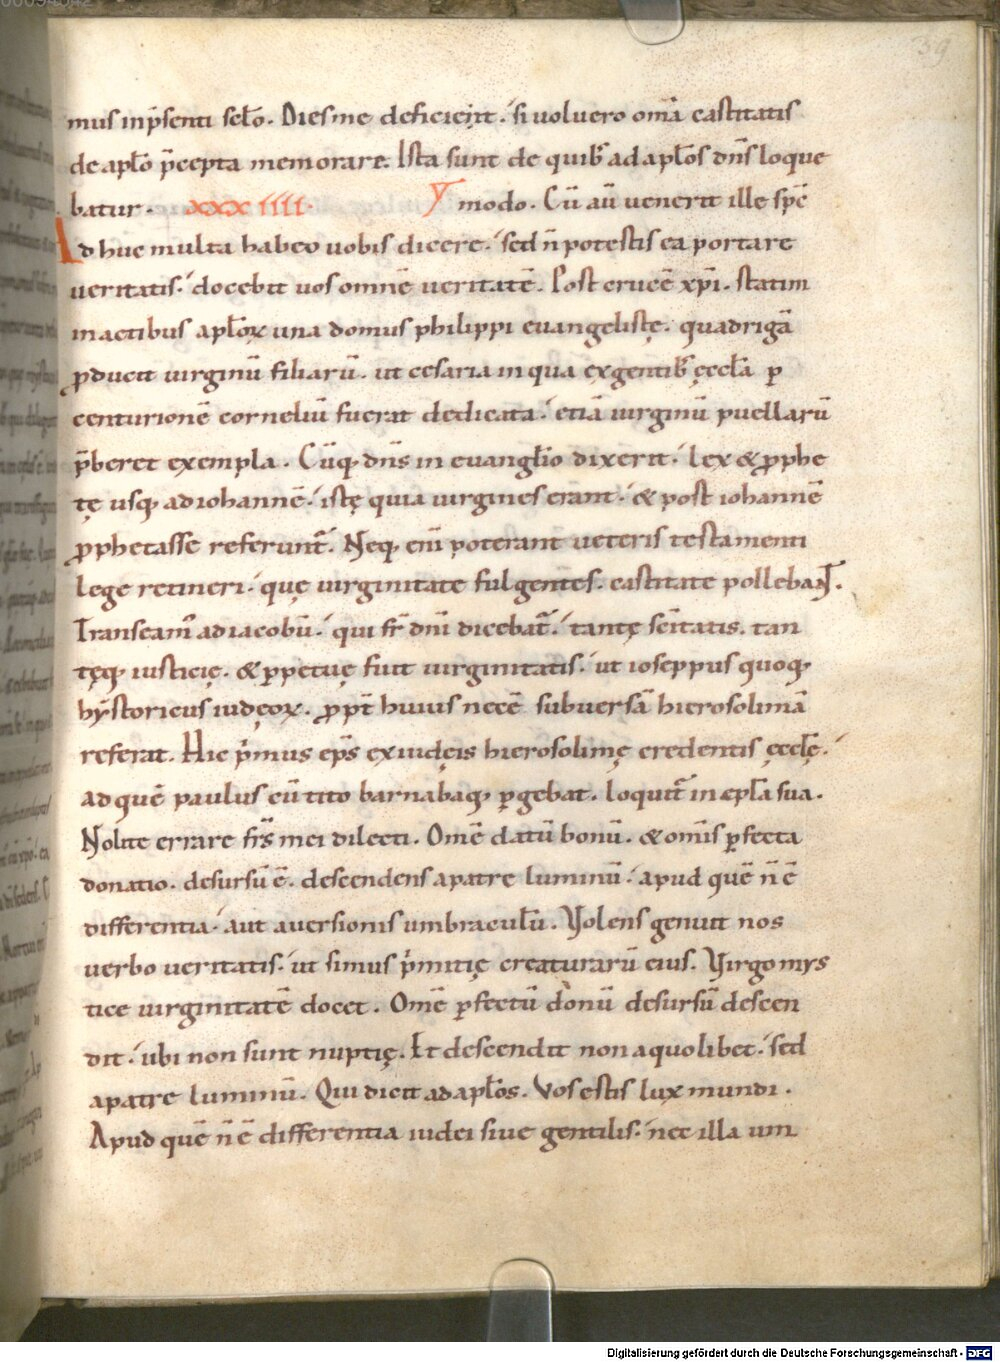 39
mus inp̄senti sc̄lo. Dies me deficient. si voluero om̄a castitatis
de apl̄o p̄cepta memorare. Ista sunt de quib; ad apl̄os dn̄s loque
batur. XXXIIII. modo. Cū aū venerit ille sp̄c
Ad huc multa habeo vobis dicere. sed n̄ potestis ea portare
veritatis. docebit vos omnē veritatē. Post crucē xp̄i. statim
in actibus apl̄oꝝ una domus philippi evangelistę. quadrigā
ꝓducit virginū filiarū. ut cesaria in qua ex gentib; ęccl̄a ꝑ
centurionē corneliū fuerat dedicata. etiā virginū puellarū
p̄beret exempla. Cūq; dn̄s in evangl̄io dixerit. Lex & ꝓphe
tę usq; ad iohannē. istę quia virgines erant. & post iohannē
ꝓphetasse referunt̄. Neq; enī poterant veteris testamenti
lege retineri. quę virginitate fulgentes. castitate pollebant.
Transeam̄ ad iacobū. qui fr̄ dn̄i dicebat̄. tantę sc̄itatis. tan
tęq; iusticię. & ꝑpetuę fuit virginitatis. ut ioseppus quoq;
hystoricus iudęoꝝ. ꝓpt̄ huius necē subversā hierosolimā
referat. Hic p̄mus ep̄s ex iudęis hierosolimę credentis ęccl̄ę.
ad quē paulus cū tito barnabaq; ꝑgebat. loquit̄ in epl̄a sua.
Nolite errare fr̄s mei dilecti. Omē datū bonū. & om̄is ꝑfecta
donatio. desursū ē. descendens a patre luminū. apud quē n̄ ē
differentia. aut aversionis umbraculū. Volens genuit nos
verbo veritatis. ut simus p̄mitię creaturarū eius. Virgo mys
tice virginitatē docet. Omē ꝑfectū donū desursū descen
dit. ubi non sunt nuptię. Et descendit non a quolibet. sed
a patre luminū. Qui dicit ad apl̄os. Vos estis lux mundi.
Apud quē n̄ ē differentia iudei sive gentilis. nec illa um
Digitalisierung gefördert durch die Deutsche Forschungsgemeinschaft - DFG